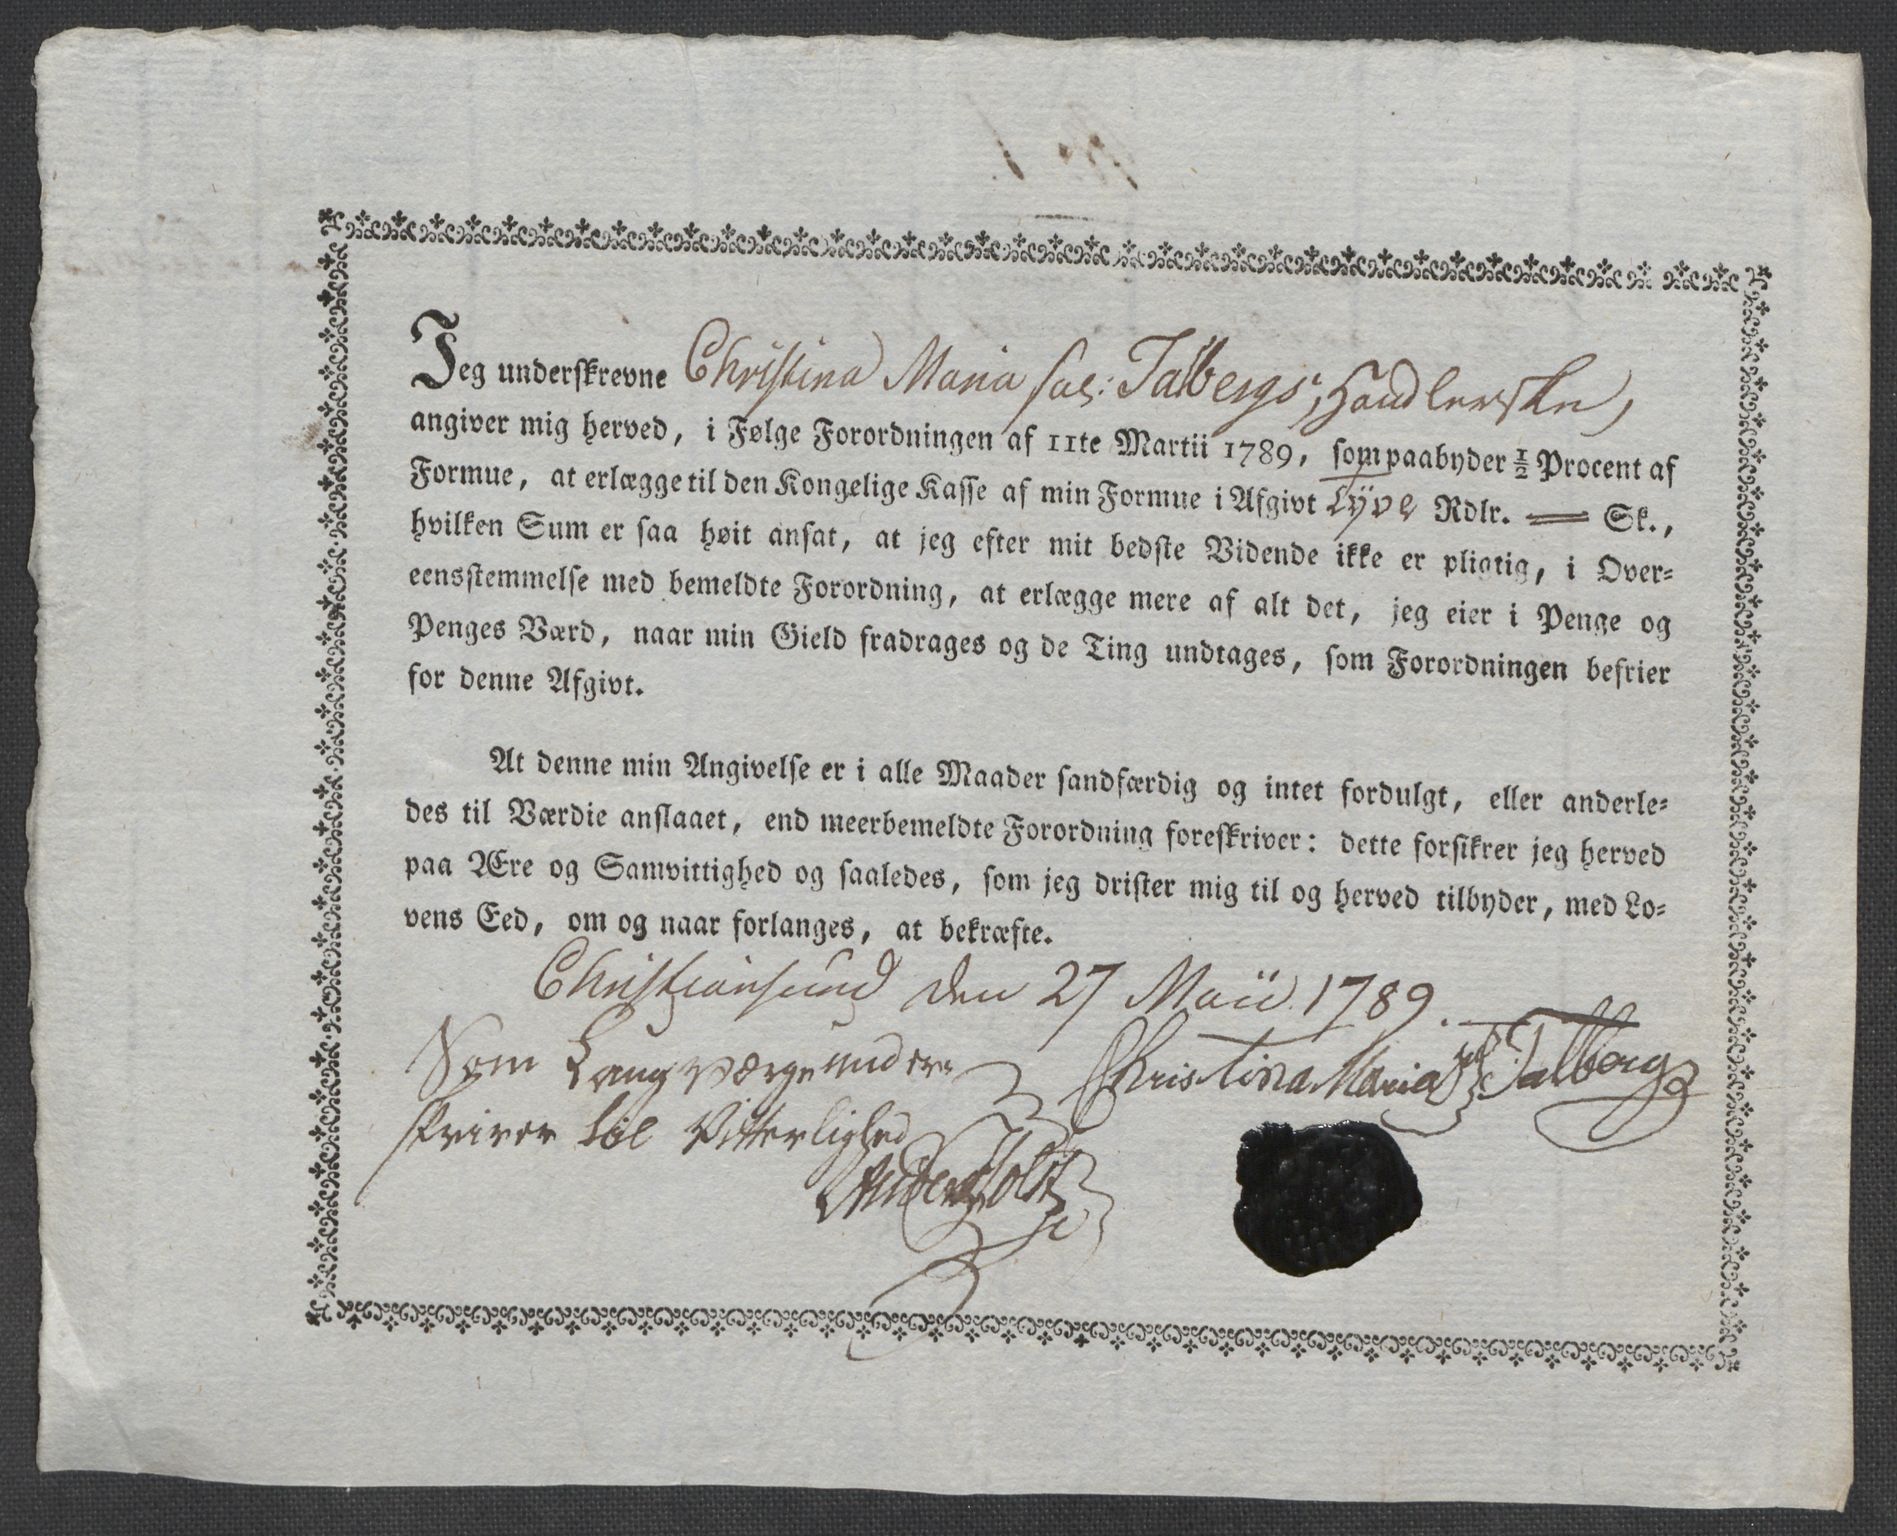 Jeg underskrevne Christina Maria sal: Talbergs, Handlerske,
angiver mig herved, i Følge Forordningen af 11te Martii 1789, som paabyder ½ Procent af
Formue, at erlægge til den Kongelige Kasse af min Formue i Afgivt tÿve Rdlr. — Sk.,
hvilken Sum er saa høit ansat, at jeg efter mit bedste Vidende ikke er pligtig, i Over-
eensstemmelse med bemeldte Forordning, at erlægge mere af alt det, jeg eier i Penge og
Penges Værd, naar min Gield fradrages og de Ting undtages, som Forordningen befrier
for denne Afgivt.
At denne min Angivelse er i alle Maader sandfærdig og intet fordulgt, eller anderle-
des til Værdie anslaaet, end meerbemeldte Forordning foreskriver: dette forsikrer jeg herved
paa Ære og Samvittighed og saaledes, som jeg drister mig til og herved tilbyder, med Lo-
vens Eed, om og naar forlanges, at bekræfte.
Christiansund den 27 Maii 1789.
Som Laugværge under- Christina Maria Sl Talberg
skriver til Vitterlighed